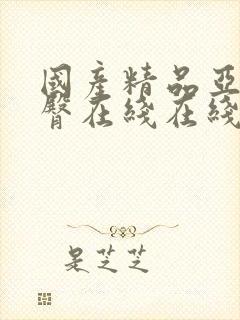 國產精品亞
臀在綫在綫
是芝芝